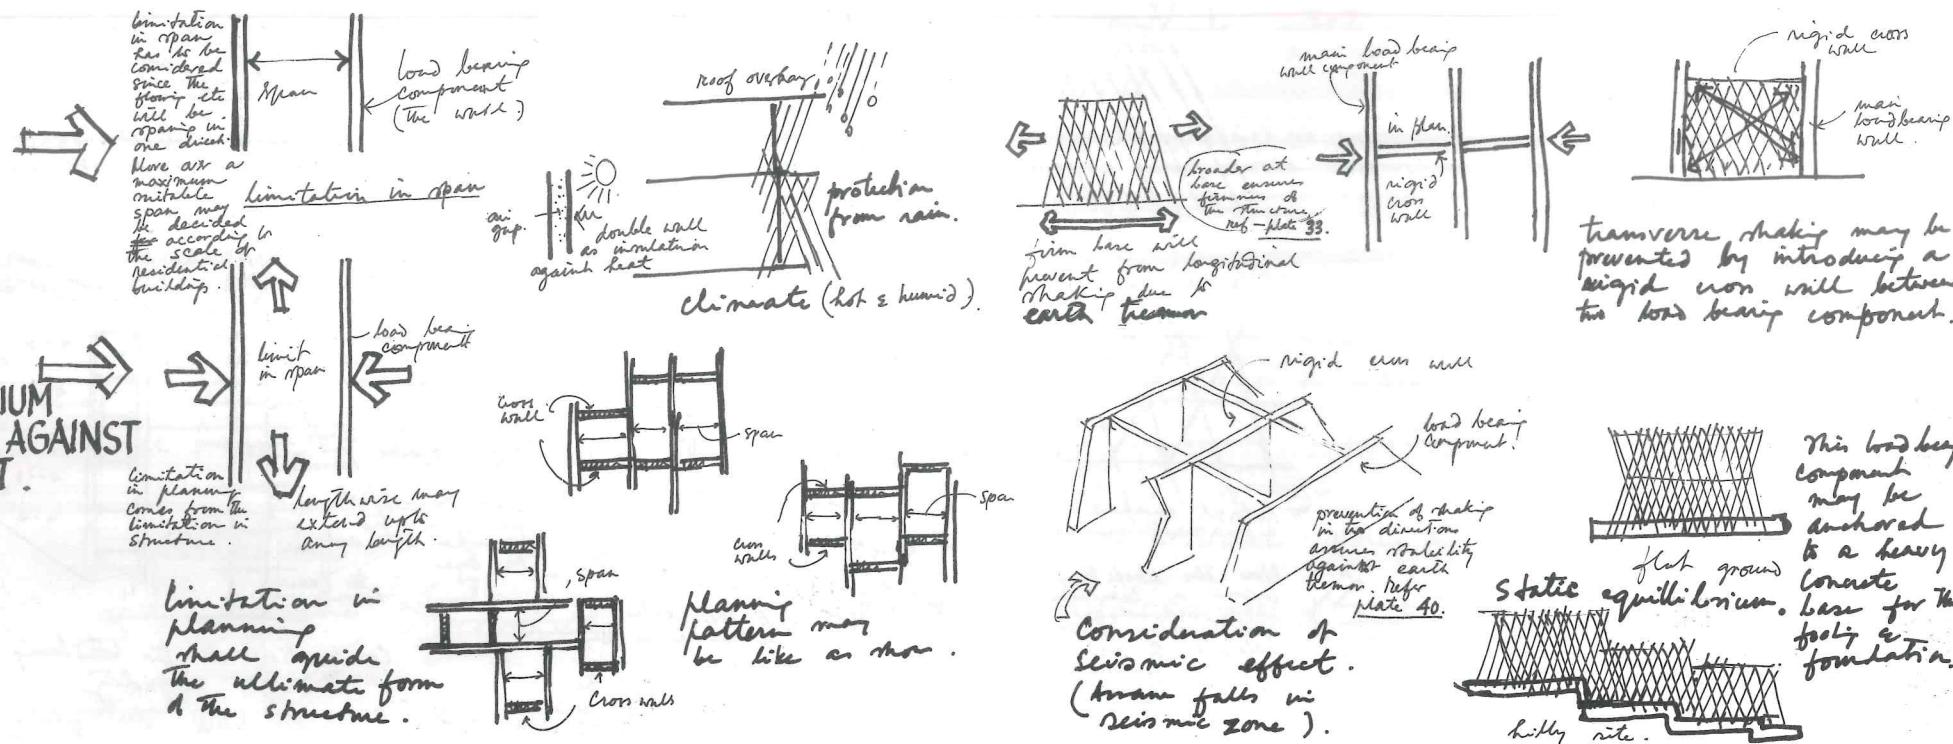 limitation
in span
has to be
considered
since the
flooring etc
will be
spaning in
one directi
More over a
maximum
suitable
span may
be decided
according to
the scale of
residential
building.
span
load bearing
component
(the walls)
limitation in span
roof overhang
air
gap.
double wall
as insulation
against heat
protection
from rain.
climate (hot & humid).
IUM
AGAINST
T.
limit
in span
load bearing
component
limitation
in planning
comes from the
limitation in
structure.
lengthwise may
extend upto
any length.
limitation in
planning
shall guide
the ultimate form
of the structure.
cross
wall
span
cross
walls
span
span
cross walls
planning
pattern may
be like as show.
broader at
base ensures
firmness of
the structure
ref-plate 33.
firm base will
prevent from longitudinal
shaking due to
earth tremor
main load bearing
wall component
in plan.
rigid
cross
wall
rigid cross
wall
main
load bearing
wall.
transverse shaking may be
prevented by introducing a
rigid cross wall between
two load bearing component.
rigid cross wall
load bearing
component!
prevention of shaking
in two directions
assures stability
against earth
tremor. Refer
plate 40.
Consideration of
seismic effect.
(Assam falls in
seismic zone).
flat ground
static equillibrium.
hilly site.
This load bear
component
may be
anchored
to a heavy
concrete
base for th
footing &
foundation.